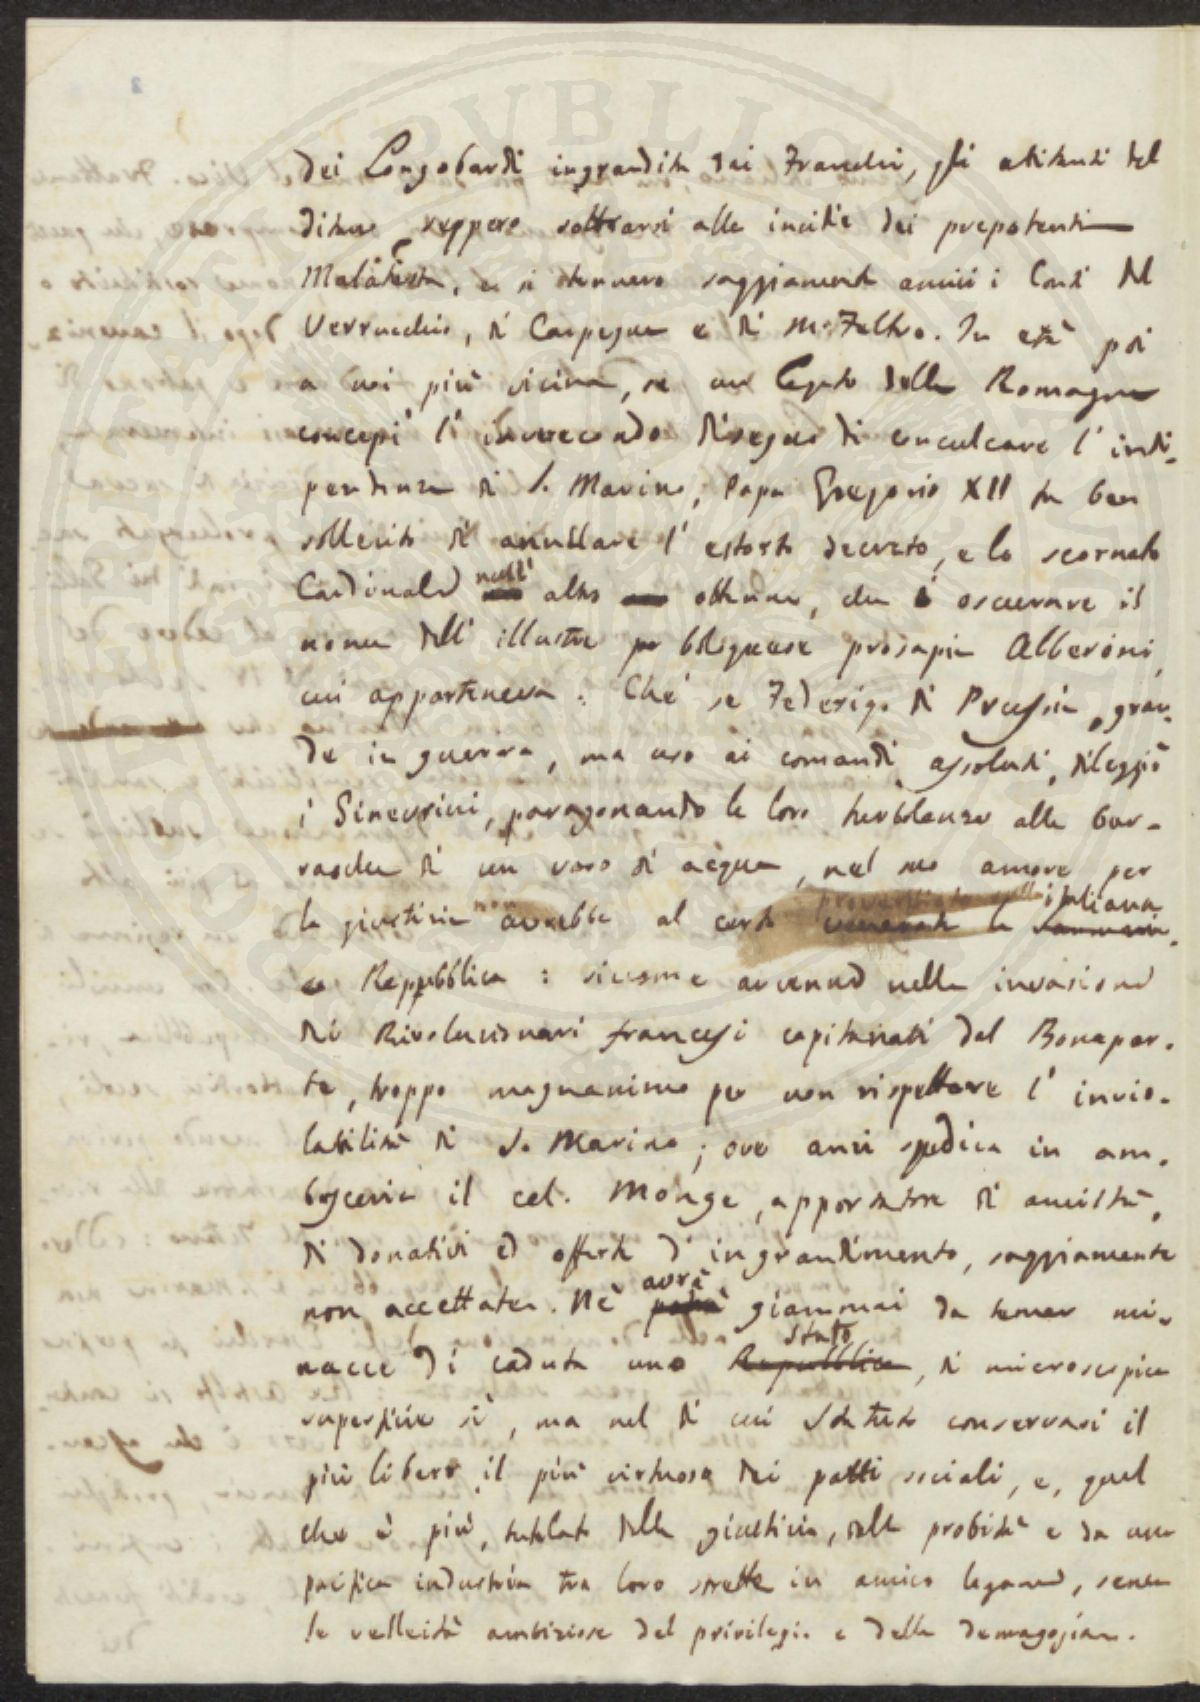 dei Longobardi ingrandita dai Franchi, gli abitanti del
Titano seppero sottrarsi alle insidie dei prepotenti
Malatesta, e si tennero saggiamente amici i Conti del
Verrucchio, di Carpegna e di M.Feltro. In età poi
a noi più vicina, se un Legato della Romagna
concepì l'inverecondo disegno di conculcare l'indi-
pendenza di S. Marino, Papa Gregorio XII fu ben
sollecito di annullare l'estorto decreto, e lo scornato
Cardinale null' altro ottenne, che oscurare il
nome dell' illustre bolognese prosapia Alberoni,
cui apparteneva: Chè se Federigo di Prussia, gran-
de in guerra, ma uso ai comandi assoluti, dileggiò
i Ginevrini, paragonando le loro turbolenze alle bur-
rasche di un vaso di acqua, nel suo amore per
la giustizia non avrebbe al certo proverbiato la italiana
Repubblica: siccome avvenne nella invasione
dei Rivoluzionari francesi capitanati dal Bonapar-
te, troppo magnanimo per non rispettare l'invio-
labilità di S. Marino; ove anzi spediva in am-
basceria il cel. Monge, apportatore di amistà,
di donativi ed offerte d'ingrandimento, saggiamente
non accettate. Nè avrà giammai da temer mi-
nacce di caduta uno Stato, di microscopica
superficie sì, ma nel di cui Statuto conservasi il
più libero, il più virtuoso dei patti sociali, e, quel
che è più, tutelato dalla giustizia, dalla probità e da una
pacifica industria tra loro strette in amico legame, senza
le velleità ambiziose del privilegio e della demagogia.